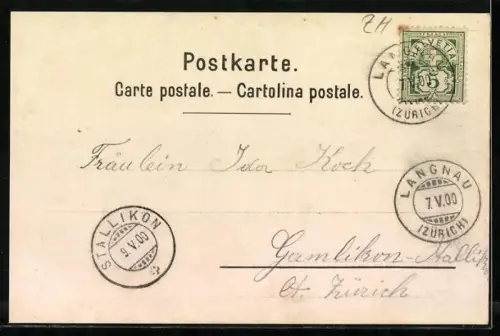 ZH
Postkarte.
Carte postale. — Cartolina postale.
HELVETIA
5
LANGNAU
7.V.00
(ZÜRICH)
Fräulein Ida Koch
LANGNAU
7.V.00
(ZÜRICH)
STALLIKON
9.V.00
Gamlikon-Stallikon
Ct. Zürich